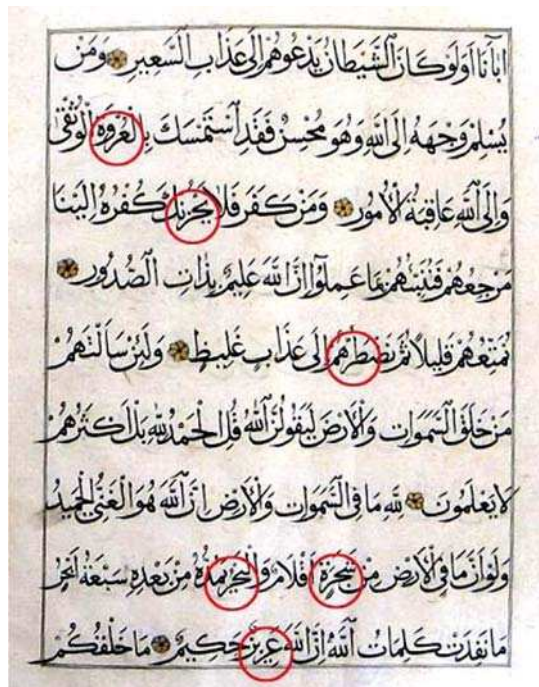 اٰبَٓاءَنَا اَوَلَوْ كَانَ الشَّيْطَانُ يَدْعُوهُمْ اِلٰى عَذَابِ السَّعٖيرِ وَمَنْ
يُسْلِمْ وَجْهَهُ اِلَى اللّٰهِ وَهُوَ مُحْسِنٌ فَقَدِ اسْتَمْسَكَ بِالْعُرْوَةِ الْوُثْقٰى
وَاِلَى اللّٰهِ عَاقِبَةُ الْاُمُورِ وَمَنْ كَفَرَ فَلَا يَحْزُنْكَ كُفْرُهُ اِلَيْنَا
مَرْجِعُهُمْ فَنُنَبِّئُهُمْ بِمَا عَمِلُوا اِنَّ اللّٰهَ عَلِيمٌ بِذَاتِ الصُّدُورِ
نُمَتِّعُهُمْ قَلِيلًا ثُمَّ نَضْطَرُّهُمْ اِلٰى عَذَابٍ غَلِيظٍ وَلَئِنْ سَاَلْتَهُمْ
مَنْ خَلَقَ السَّمٰوَاتِ وَالْاَرْضَ لَيَقُولُنَّ اللّٰهُ قُلِ الْحَمْدُ لِلّٰهِ بَلْ اَكْثَرُهُمْ
لَا يَعْلَمُونَ لِلّٰهِ مَا فِي السَّمٰوَاتِ وَالْاَرْضِ اِنَّ اللّٰهَ هُوَ الْغَنِيُّ الْحَمِيدُ
وَلَوْ اَنَّ مَا فِي الْاَرْضِ مِنْ شَجَرَةٍ اَقْلَامٌ وَالْبَحْرُ يَمُدُّهُ مِنْ بَعْدِهِ سَبْعَةُ اَبْحُرٍ
مَا نَفِدَتْ كَلِمَاتُ اللّٰهِ اِنَّ اللّٰهَ عَزِيزٌ حَكِيمٌ مَا خَلْقُكُمْ